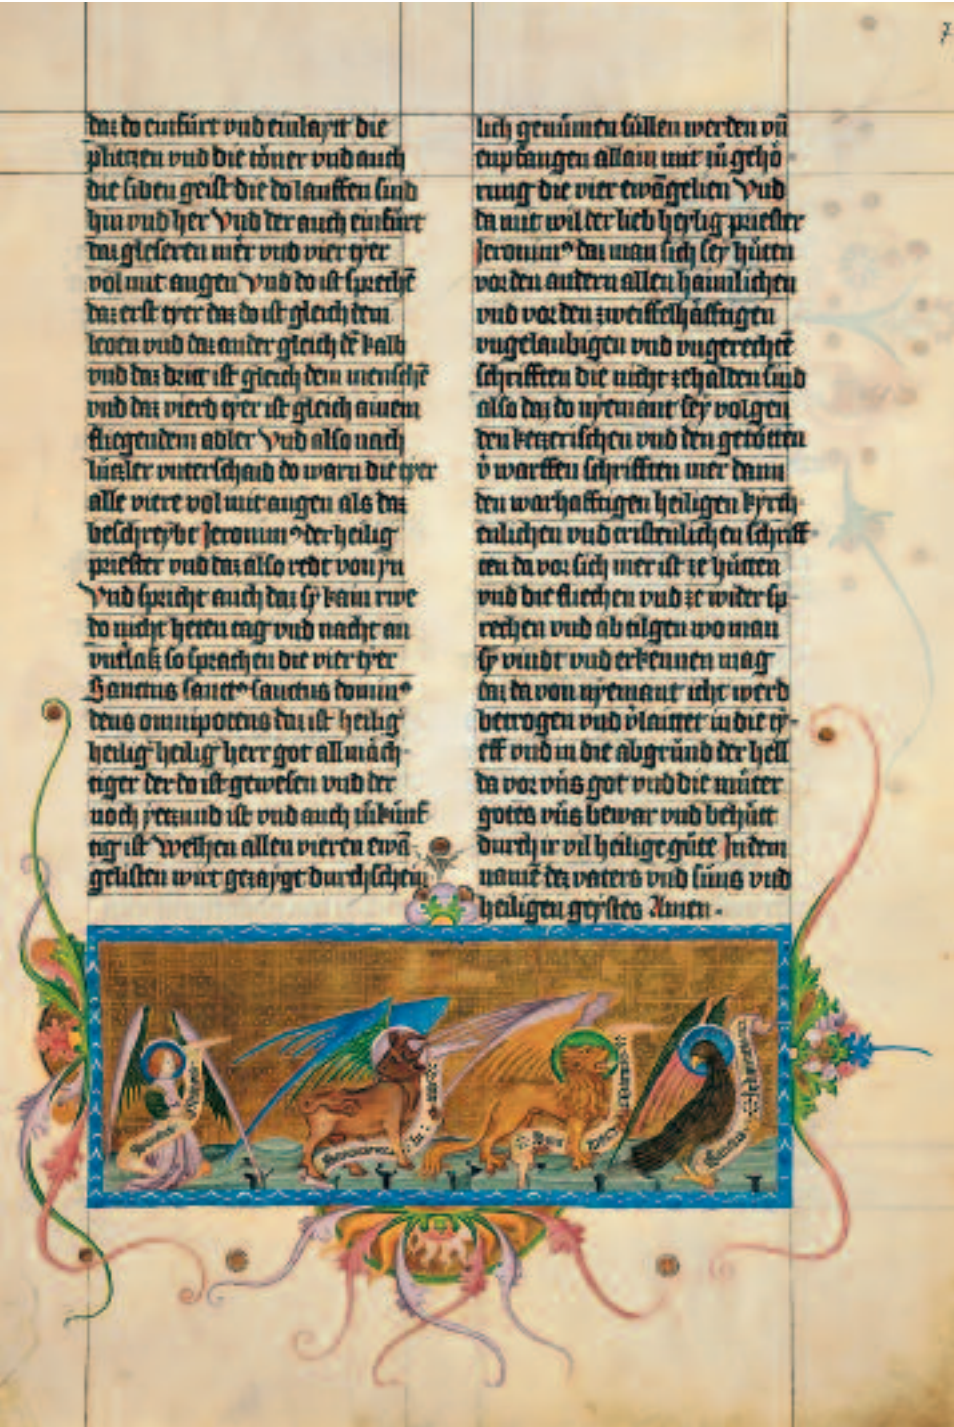 daz do einfürt vnd einlaytt die
plitzen vnd die töner vnd auch
die siben geist die do lauffen sind
hin vnd her Vnd der auch einfürt
daz gleseren mer vnd vier tyer
vol mit augen Vnd do ist sprechē
daz erst tyer daz do ist gleich dem
leoen vnd daz ander gleich dē kalb
vnd daz dritt ist gleich dem menschē
vnd daz vierd tyer ist gleich ainem
fliegendem adler Vnd also nach
lützler vnterschaid do warn die tyer
alle viere vol mit augen als daz
beschreybt Jeronimꝰ der heilig
priester vnd daz also redt von jn
Vnd spricht auch daz sy kain rwe
do nicht heten tag vnd nacht an
vntlaß so sprachen die vier tyer
Sanctus sanctꝰ sanctus dominꝰ
deus omnipotens daz ist heilig
heilig heilig herr got allmäch-
tiger der do ist gewesen vnd der
noch yetzund ist vnd auch zükünf
tig ist Welhen allen vieren ewā
gelisten wirt gezaygt durchschein
lich genūmen süllen werden vn̄
enpfangen allain mit zü gehö-
rung die vier ewāgelien Vnd
da mit wil der lieb heylig priester
Jeronimꝰ daz man sich sey hüten
vor den andern allen haimlichen
vnd vor den zweiffelhäfftigen
vngelaubigen vnd vngerechtē
schrifften die nicht zehalden sind
also daz do nyemant sey volgen
den ketzerischen vnd den getötten
v̄warffen schrifften mer dann
den warhafftigen heiligen kyrch-
enlichen vnd cristenlichen schrifft-
ten da vor sich mer ist ze hütten
vnd die fliechen vnd ze wider sp-
rechen vnd abtilgen wo man
sy vindt vnd erkennen mag
daz da von nyemant icht werd
betrogen vnd v̄laittet in die ty-
eff vnd in die abgründ der hell
da vor vns got vnd die müter
gotes vns bewar vnd behütt
durch ir vil heilige güte In dem
namē dez vaters vnd süns vnd
heiligen geystes Amen.